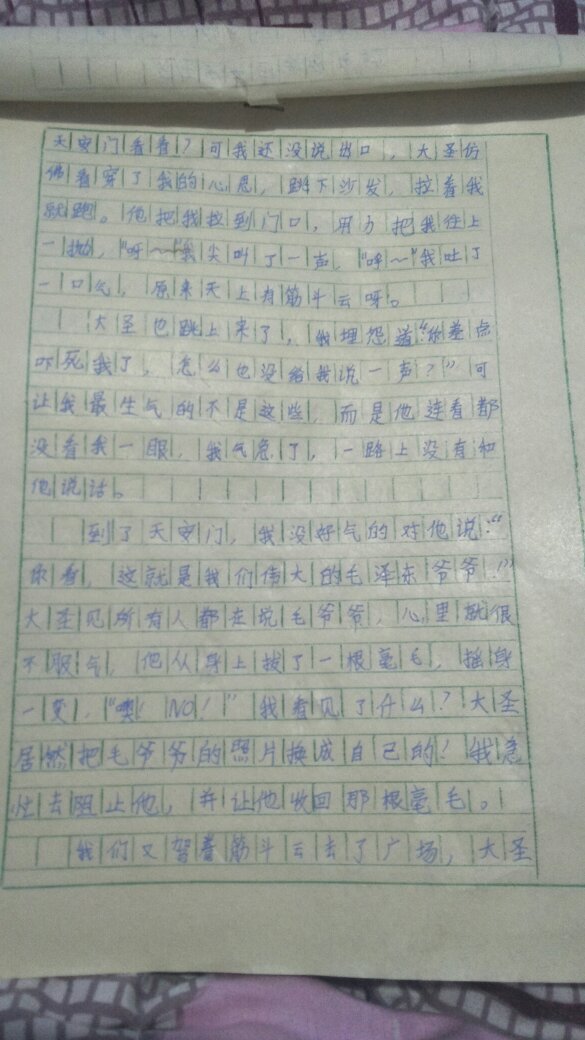 天安门看看？可我还没说出口，大圣仿
佛看穿了我的心思，跳下沙发，拉着我
就跑。他把我拉到门口，用力把我往上
一抛，“呀～”我尖叫了一声，“呼～”我吐了
一口气，原来天上有筋斗云呀。
大圣也跳上来了，我埋怨道“你差点
吓死我了，怎么也没给我说一声？”可
让我最生气的不是这些，而是他连看都
没看我一眼，我气急了，一路上没有和
他说话。
到了天安门，我没好气的对他说：“
你看，这就是我们伟大的毛泽东爷爷！”
大圣见所有人都在说毛爷爷，心里就很
不服气，他从身上拔了一根毫毛，摇身
一变，“噢！NO！”我看见了什么？大圣
居然把毛爷爷的照片换成自己的！我急
忙去阻止他，并让他收回那根毫毛。
我们又驾着筋斗云去了广场，大圣